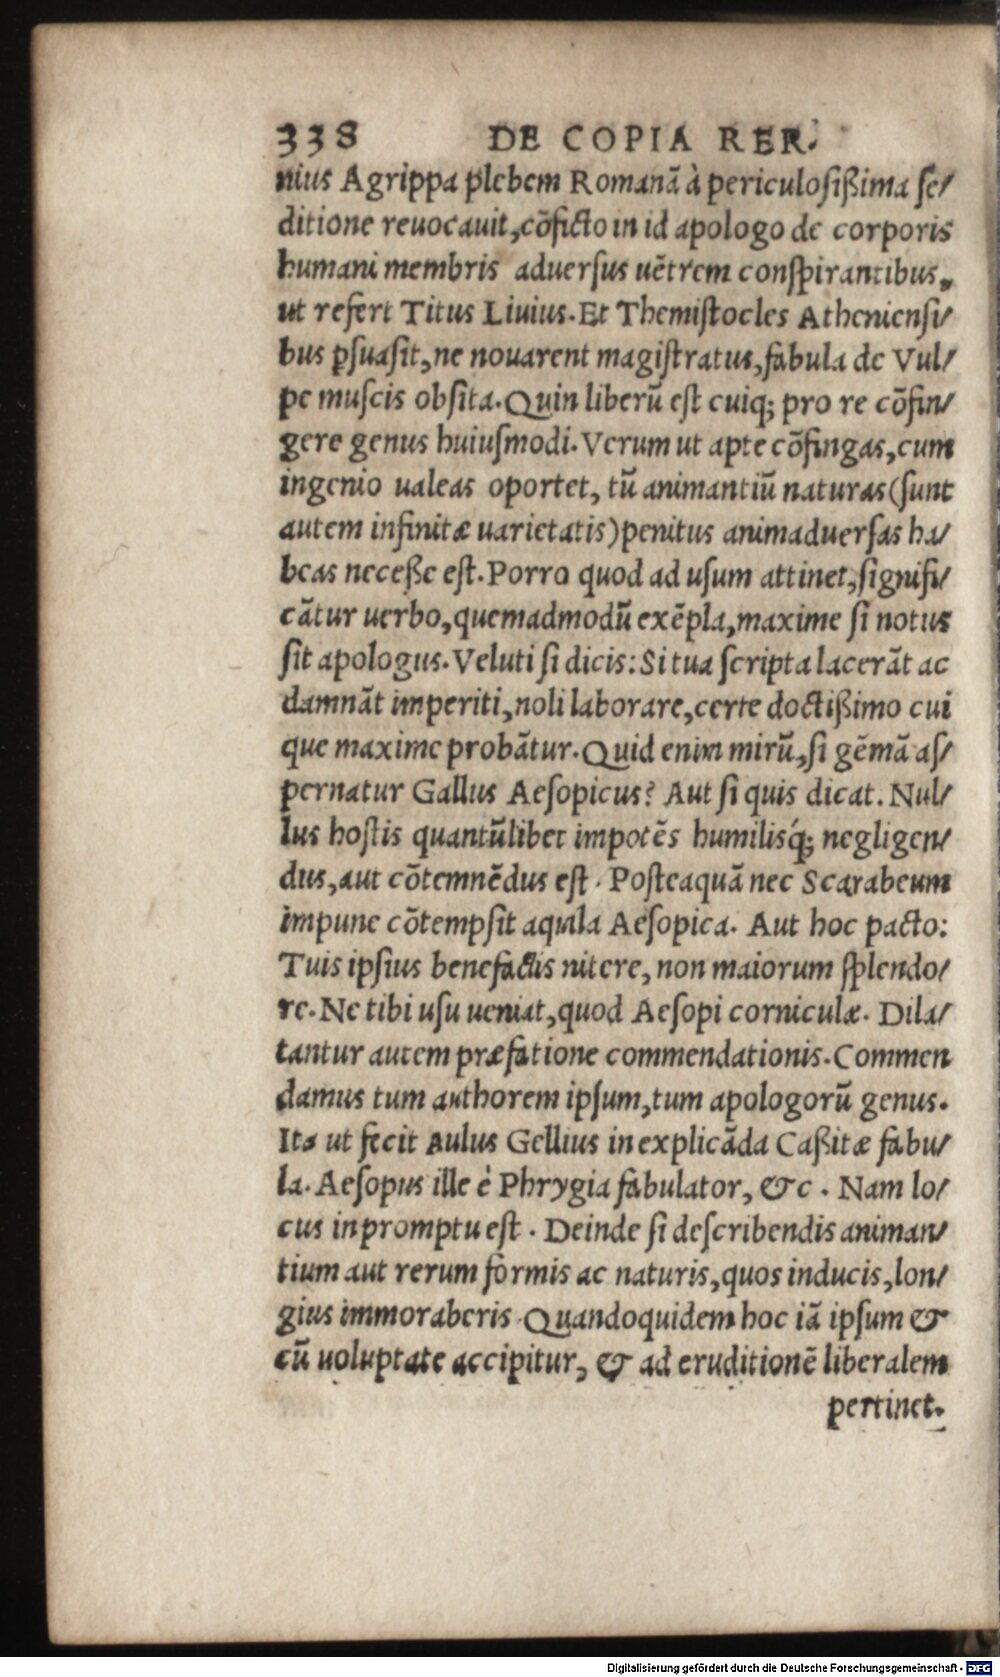 338 DE COPIA RER.
nius Agrippa plebem Romanā à periculosißima se/
ditione reuocauit, cōficto in id apologo de corporis
humani membris aduersus uētrem conspirantibus,
ut refert Titus Liuius. Et Themistocles Atheniensi/
bus ꝑsuasit, ne nouarent magistratus, fabula de Vul/
pe muscis obsita. Quin liberū est cuiqꝫ pro re cōfin/
gere genus huiusmodi. Verum ut apte cōfingas, cum
ingenio ualeas oportet, tū animantiū naturas (sunt
autem infinitæ uarietatis) penitus animaduersas ha/
beas neceße est. Porro quod ad usum attinet, signifi/
cātur uerbo, quemadmodū exēpla, maxime si notus
sit apologus. Veluti si dicis: Si tua scripta lacerāt ac
damnāt imperiti, noli laborare, certe doctißimo cui
que maxime probātur. Quid enim mirū, si gēmā as/
pernatur Gallus Aesopicus? Aut si quis dicat. Nul/
lus hostis quantūlibet impotēs humilisq́ꝫ negligen/
dus, aut cōtemnēdus est. Posteaquā nec Scarabeum
impune cōtempsit aquila Aesopica. Aut hoc pacto:
Tuis ipsius benefactis nitere, non maiorum splendo/
re. Ne tibi usu ueniat, quod Aesopi corniculæ. Dila/
tantur autem præfatione commendationis. Commen
damus tum authorem ipsum, tum apologorū genus.
Ita ut fecit Aulus Gellius in explicāda Caßitæ fabu/
la. Aesopus ille è Phrygia fabulator, &c. Nam lo/
cus in promptu est. Deinde si describendis animan/
tium aut rerum formis ac naturis, quos inducis, lon/
gius immoraberis. Quandoquidem hoc iā ipsum &
cū uoluptate accipitur, & ad eruditionē liberalem
pertinet.
Digitalisierung gefördert durch die Deutsche Forschungsgemeinschaft - DFG